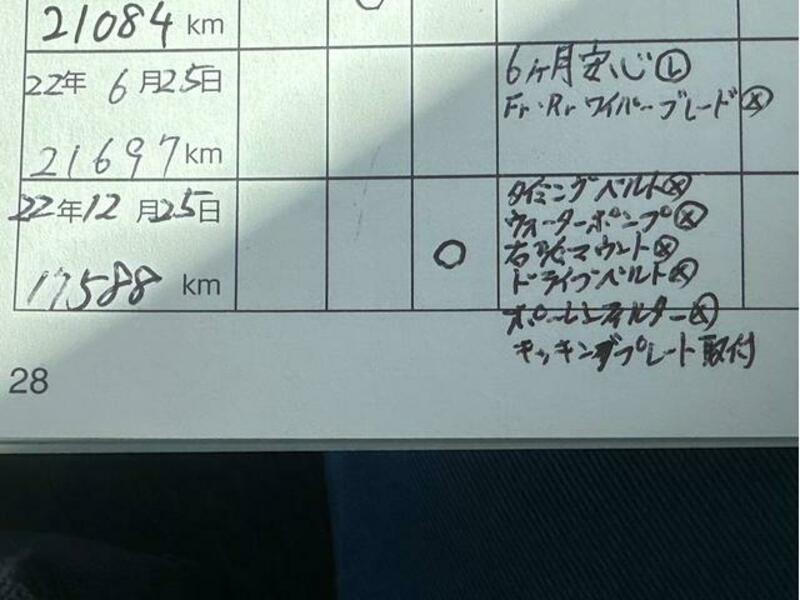 21084 km
22年 6月25日
21697 km
6ヶ月安心Ⓛ
Fr・Rr ワイパーブレードⓧ
22年12月25日
17588 km
タイミングベルトⓧ
ウォーターポンプⓧ
右 マウントⓧ
ドライブベルトⓧ
ポーレンフィルターⓧ
キッキングプレート取付
28